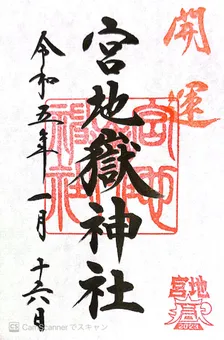 開運
宮地嶽神社
令和五年一月十六日
宮地嶽
2023
CS CamScanner でスキャン